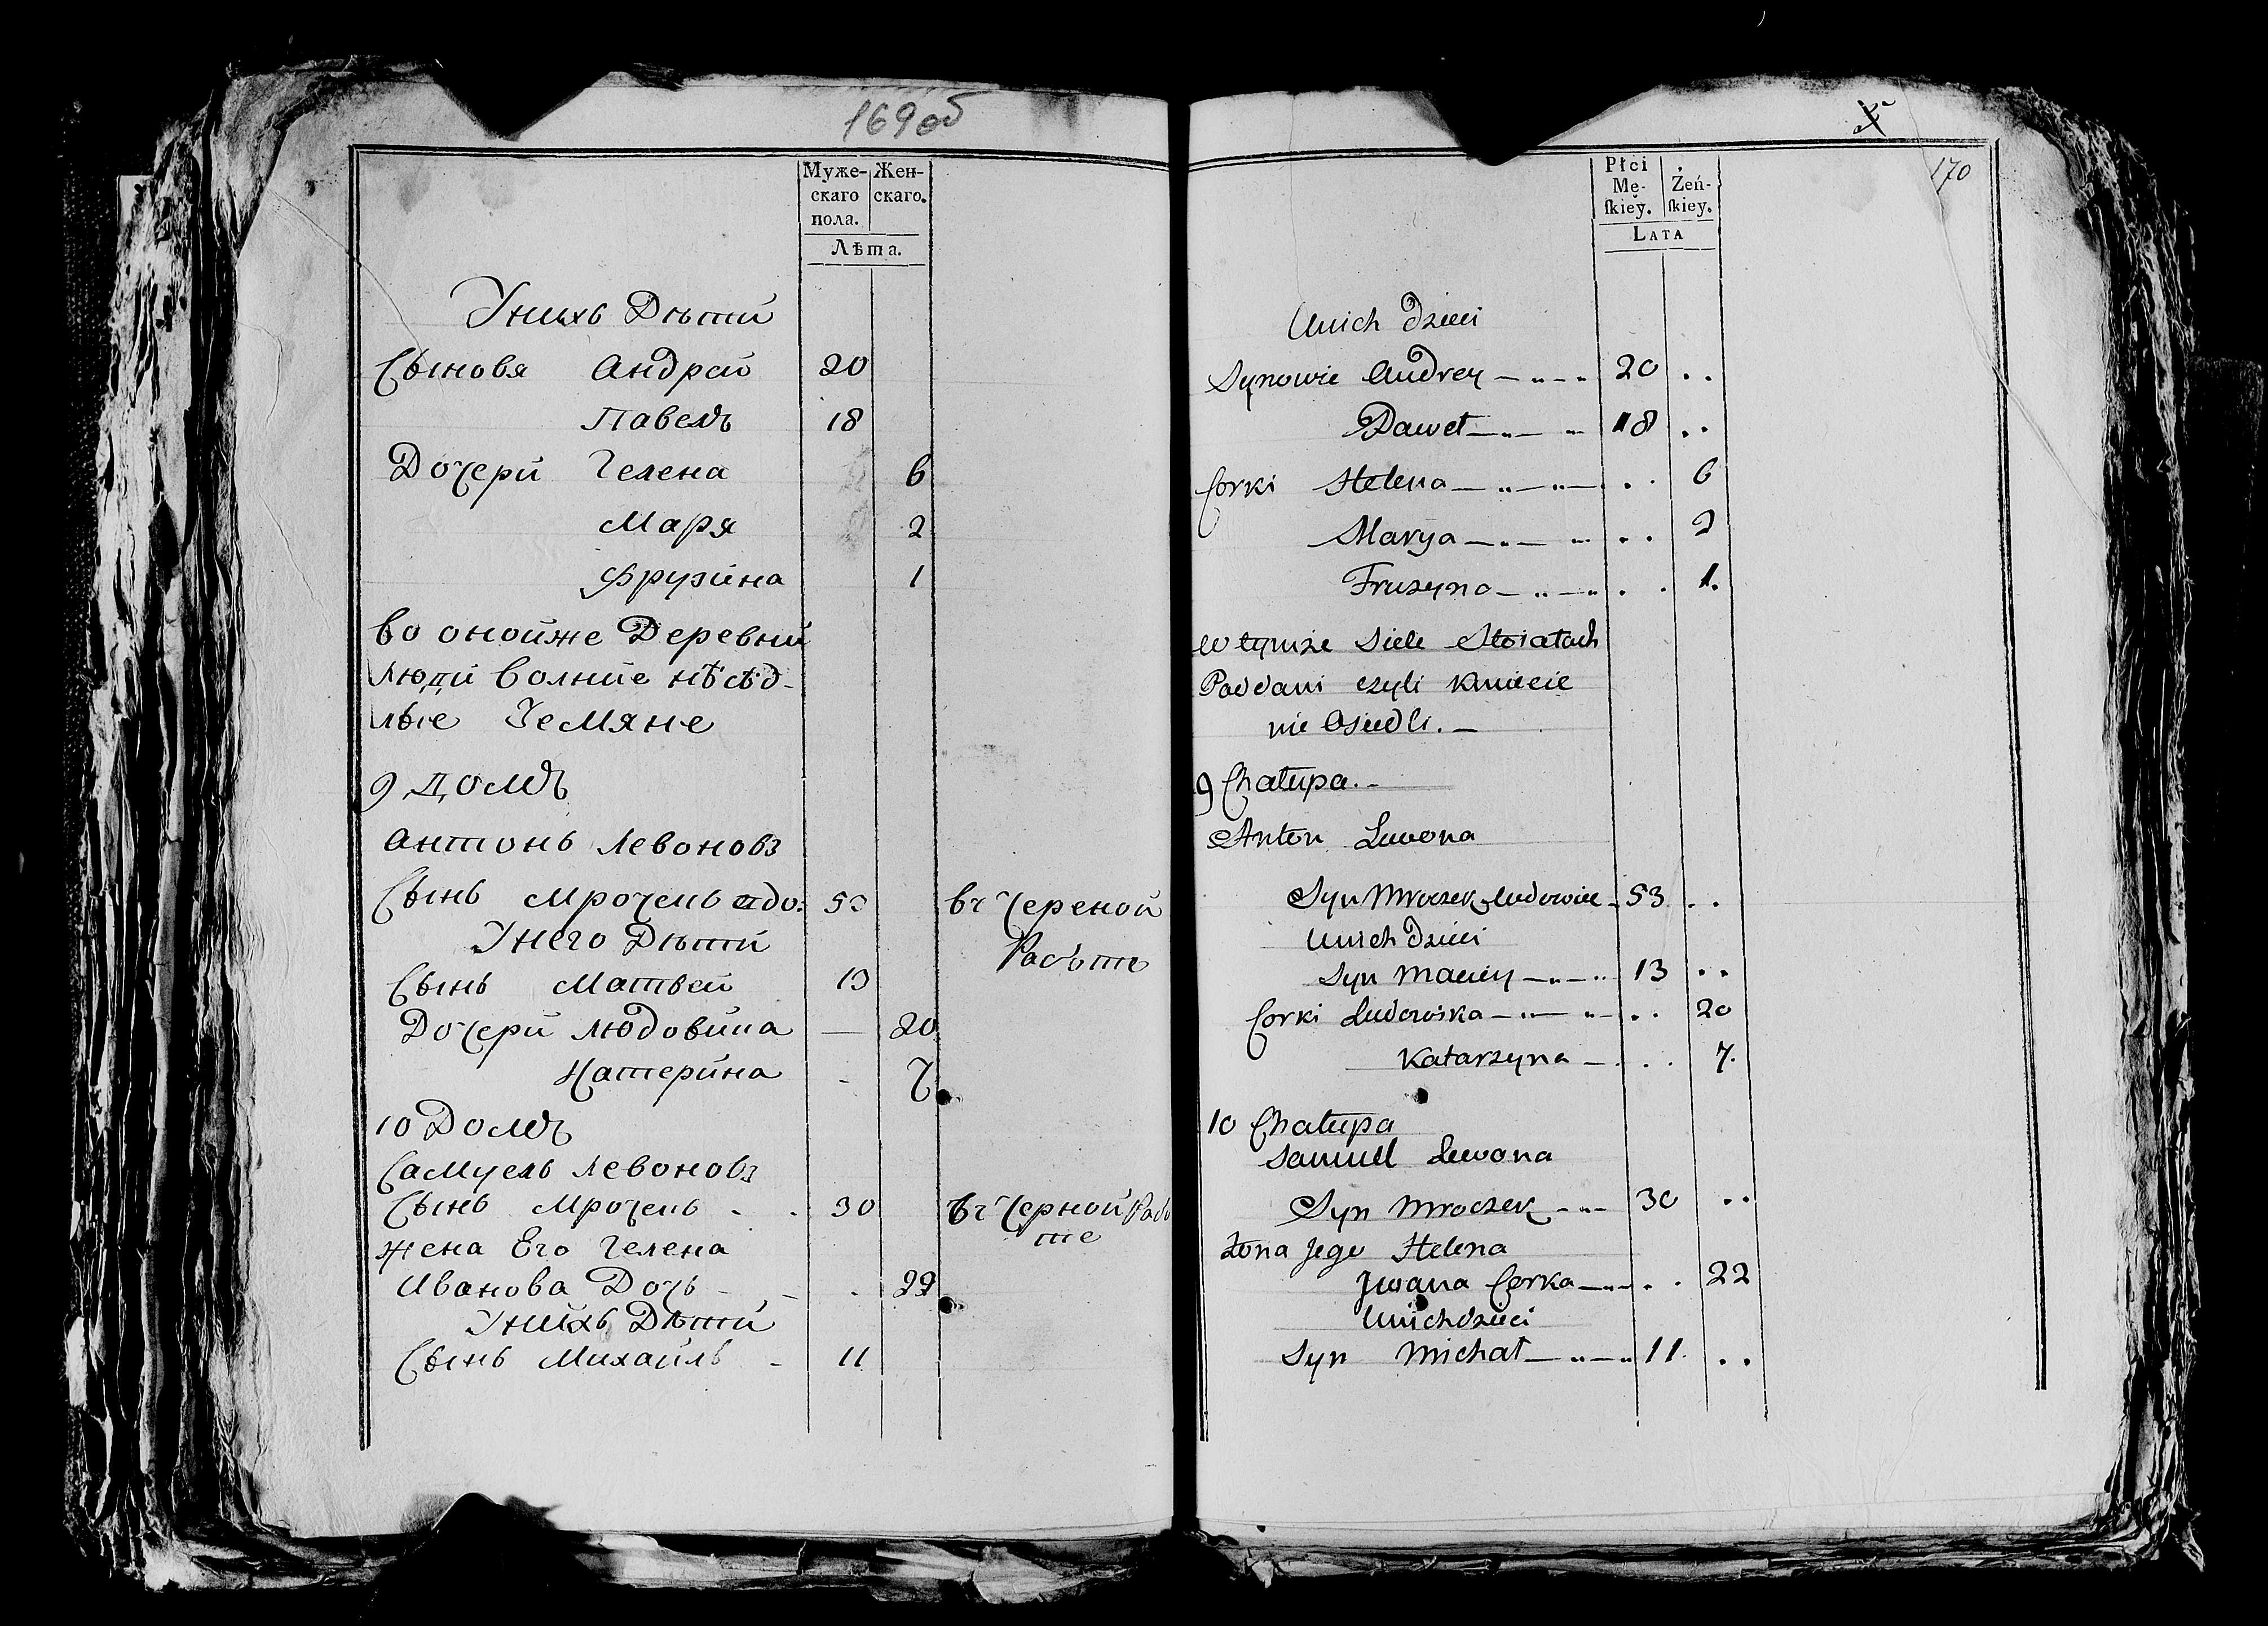 169 об
Муже- Жен-
скаго скаго.
пола.
Лѣта.
Унихъ Дѣти
Сынове Андрей 20
Павелъ 18
Дочери Гелена 6
Маря 2
Фрузина 1
во онойже Деревни
Люди волние нѣсѣд-
лые Земяне
9 Домъ
Антонъ Левоновъ
Сынъ Мрочекъ вдо: 53 въ Череной
Унего Дѣти Работе
Сынъ Матвей 13
Дочери Людовика — 20
Катерина - 7
10 Домъ
Самуель Левоновъ
Сынъ Мрочекъ - - 30 въ Черной Рабо
те
жена Его Гелена
Иванова Дочь - - . 22
Унихъ Дѣти
Сынъ Михаилъ - 11
170
Płci
Mę- Żeń-
ſkiey. ſkiey.
LATA
Unich Dzieci
Synowie Andrey 20 ..
Paweł 18 ..
Corki Helena .. 6
Marya .. 2
Fruzyna . . 1.
w tymże Siele
Poddani czyli Kmiecie
nie Osiedli.
9 Chałupa.
Anton Lewona
Syn Mroczek wdowiec 53 ..
Unich Dzieci
Syn Maciey 13 ..
Corki Ludowika .. 20
Katarzyna . . 7.
10 Chałupa
Samuel Lewona
Syn Mroczek 30 ..
Żona Jego Helena
Jwana Corka . . 22
Unich dzieci
Syn Michał 11. ..